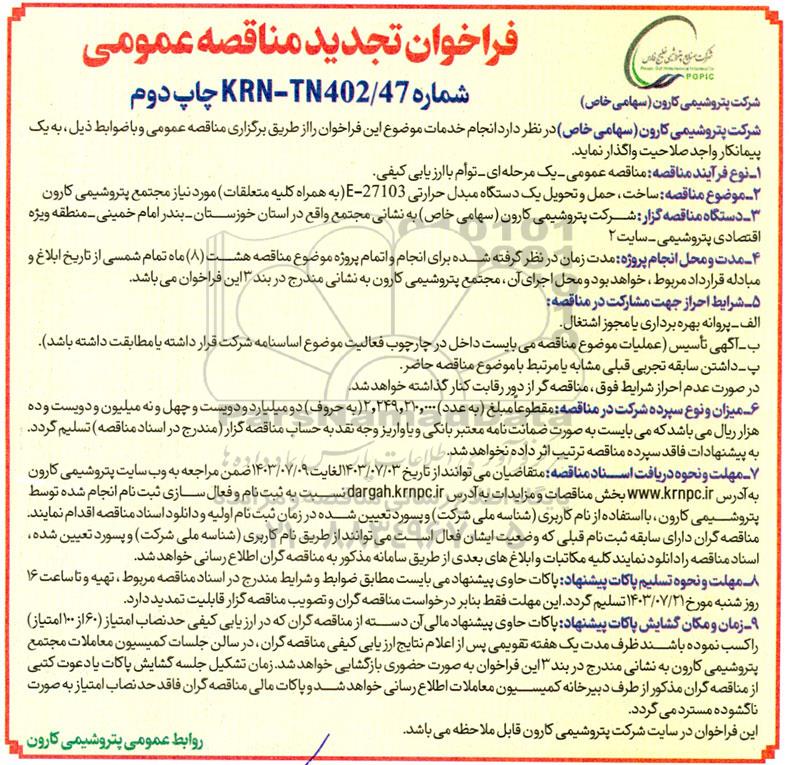 فراخوان تجدید مناقصه عمومی
شماره KRN-TN402/47 چاپ دوم
شرکت صنایع پتروشیمی خلیج فارس
POPIC
شرکت پتروشیمی کارون (سهامی خاص)
شرکت پتروشیمی کارون (سهامی خاص) در نظر دارد انجام خدمات موضوع این فراخوان را از طریق برگزاری مناقصه عمومی و با ضوابط ذیل، به یک
پیمانکار واجد صلاحیت واگذار نماید.
۱ـ نوع فرآیند مناقصه: مناقصه عمومی ـ یک مرحله‌ای ـ توأم با ارزیابی کیفی.
۲ـ موضوع مناقصه: ساخت، حمل و تحویل یک دستگاه مبدل حرارتی E-27103 (به همراه کلیه متعلقات) مورد نیاز مجتمع پتروشیمی کارون
۳ـ دستگاه مناقصه گزار: شرکت پتروشیمی کارون (سهامی خاص) به نشانی مجتمع واقع در استان خوزستان ـ بندر امام خمینی ـ منطقه ویژه
اقتصادی پتروشیمی ـ سایت ۲
۴ـ مدت و محل انجام پروژه: مدت زمان در نظر گرفته شده برای انجام و اتمام پروژه موضوع مناقصه هشت (۸) ماه تمام شمسی از تاریخ ابلاغ و
مبادله قرارداد مربوط، خواهد بود و محل اجرای آن، مجتمع پتروشیمی کارون به نشانی مندرج در بند ۳ این فراخوان می باشد.
۵ـ شرایط احراز جهت مشارکت در مناقصه:
الف ـ پروانه بهره برداری یا مجوز اشتغال.
ب ـ آگهی تأسیس (عملیات موضوع مناقصه می بایست داخل در چارچوب فعالیت موضوع اساسنامه شرکت قرار داشته یا مطابقت داشته باشد).
پ ـ داشتن سابقه تجربی قبلی مشابه یا مرتبط با موضوع مناقصه حاضر.
در صورت عدم احراز شرایط فوق، مناقصه گر از دور رقابت کنار گذاشته خواهد شد.
۶ـ میزان و نوع سپرده شرکت در مناقصه: مقطوعاً مبلغ (به عدد) ۲,۲۴۹,۲۱۰,۰۰۰ (به حروف) دو میلیارد و دویست و چهل و نه میلیون و دویست و ده
هزار ریال می باشد که می بایست به صورت ضمانت نامه معتبر بانکی و یا واریز وجه نقد به حساب مناقصه گزار (مندرج در اسناد مناقصه) تسلیم گردد.
به پیشنهادات فاقد سپرده مناقصه ترتیب اثر داده نخواهد شد.
۷ـ مهلت و نحوه دریافت اسناد مناقصه: متقاضیان می توانند از تاریخ ۱۴۰۳/۰۷/۰۳ لغایت ۱۴۰۳/۰۷/۰۹ ضمن مراجعه به وب سایت پتروشیمی کارون
به آدرس www.krnpc.ir بخش مناقصات و مزایدات به آدرس dargah.krnpc.ir نسبت به ثبت نام و فعال سازی ثبت نام انجام شده توسط
پتروشیمی کارون، با استفاده از نام کاربری (شناسه ملی شرکت) و پسورد تعیین شده در زمان ثبت نام اولیه و دانلود اسناد مناقصه اقدام نمایند.
مناقصه گران دارای سابقه ثبت نام قبلی که وضعیت ایشان فعال است می توانند از طریق نام کاربری (شناسه ملی شرکت) و پسورد تعیین شده،
اسناد مناقصه را دانلود نمایند کلیه مکاتبات و ابلاغ های بعدی از طریق سامانه مذکور به مناقصه گران اطلاع رسانی خواهد شد.
۸ـ مهلت و نحوه تسلیم پاکات پیشنهاد: پاکات حاوی پیشنهاد می بایست مطابق ضوابط و شرایط مندرج در اسناد مناقصه مربوط، تهیه و تا ساعت ۱۶
روز شنبه مورخ ۱۴۰۳/۰۷/۲۱ تسلیم گردد. این مهلت فقط بنابر درخواست مناقصه گران و تصویب مناقصه گزار قابلیت تمدید دارد.
۹ـ زمان و مکان گشایش پاکات پیشنهاد: پاکات حاوی پیشنهاد مالی آن دسته از مناقصه گران که در ارزیابی کیفی حد نصاب امتیاز (۶۰ از ۱۰۰ امتیاز)
را کسب نموده باشند ظرف مدت یک هفته تقویمی پس از اعلام نتایج ارزیابی کیفی مناقصه گران، در سالن جلسات کمیسیون معاملات مجتمع
پتروشیمی کارون به نشانی مندرج در بند ۳ این فراخوان به صورت حضوری بازگشایی خواهد شد. زمان تشکیل جلسه گشایش پاکات با دعوت کتبی
از مناقصه گران مذکور از طرف دبیرخانه کمیسیون معاملات اطلاع رسانی خواهد شد و پاکات مالی مناقصه گران فاقد حد نصاب امتیاز به صورت
ناگشوده مسترد می گردد.
این فراخوان در سایت شرکت پتروشیمی کارون قابل ملاحظه می باشد.
روابط عمومی پتروشیمی کارون